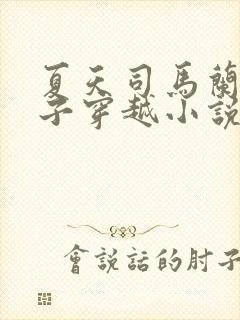 夏天司馬蘭
子穿越小說
會說話的肘子